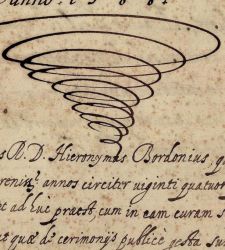 Anno. 1581
s R. D. Hieronymus Bordonius, q
annos circiter viginti quatuor
et ad huc praest, cum in eam curam s
ut quæ d. cerimonijs publicè gesta su